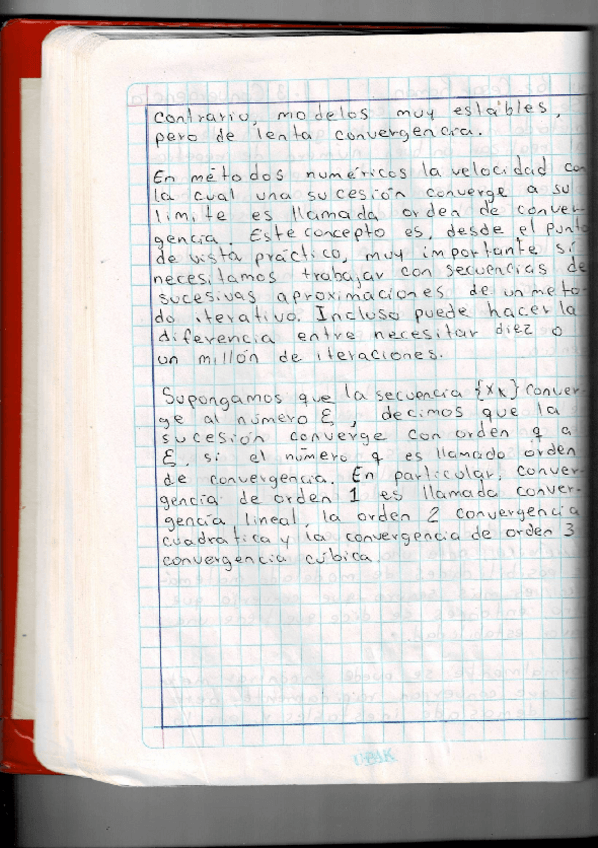 contrario, modelos muy estables,
pero de lenta convergencia.
En métodos numéricos la velocidad con
la cual una sucesión converge a su
limite es llamada orden de conver-
gencia. Este concepto es, desde el punto
de vista práctico, muy importante si
necesitamos trabajar con secuencias de
sucesivas aproximaciones de un meto-
do iterativo. Incluso puede hacer la
diferencia entre necesitar diez o
un millón de iteraciones.
Supongamos que la secuencia {Xk} conver-
ge al número ξ, decimos que la
sucesión converge con orden q a
ξ, si el número q es llamado orden
de convergencia. En particular, conver-
gencia de orden 1 es llamada conver-
gencia lineal, la orden 2 convergencia
cuadratica y la convergencia de orden 3
convergencia cúbica.